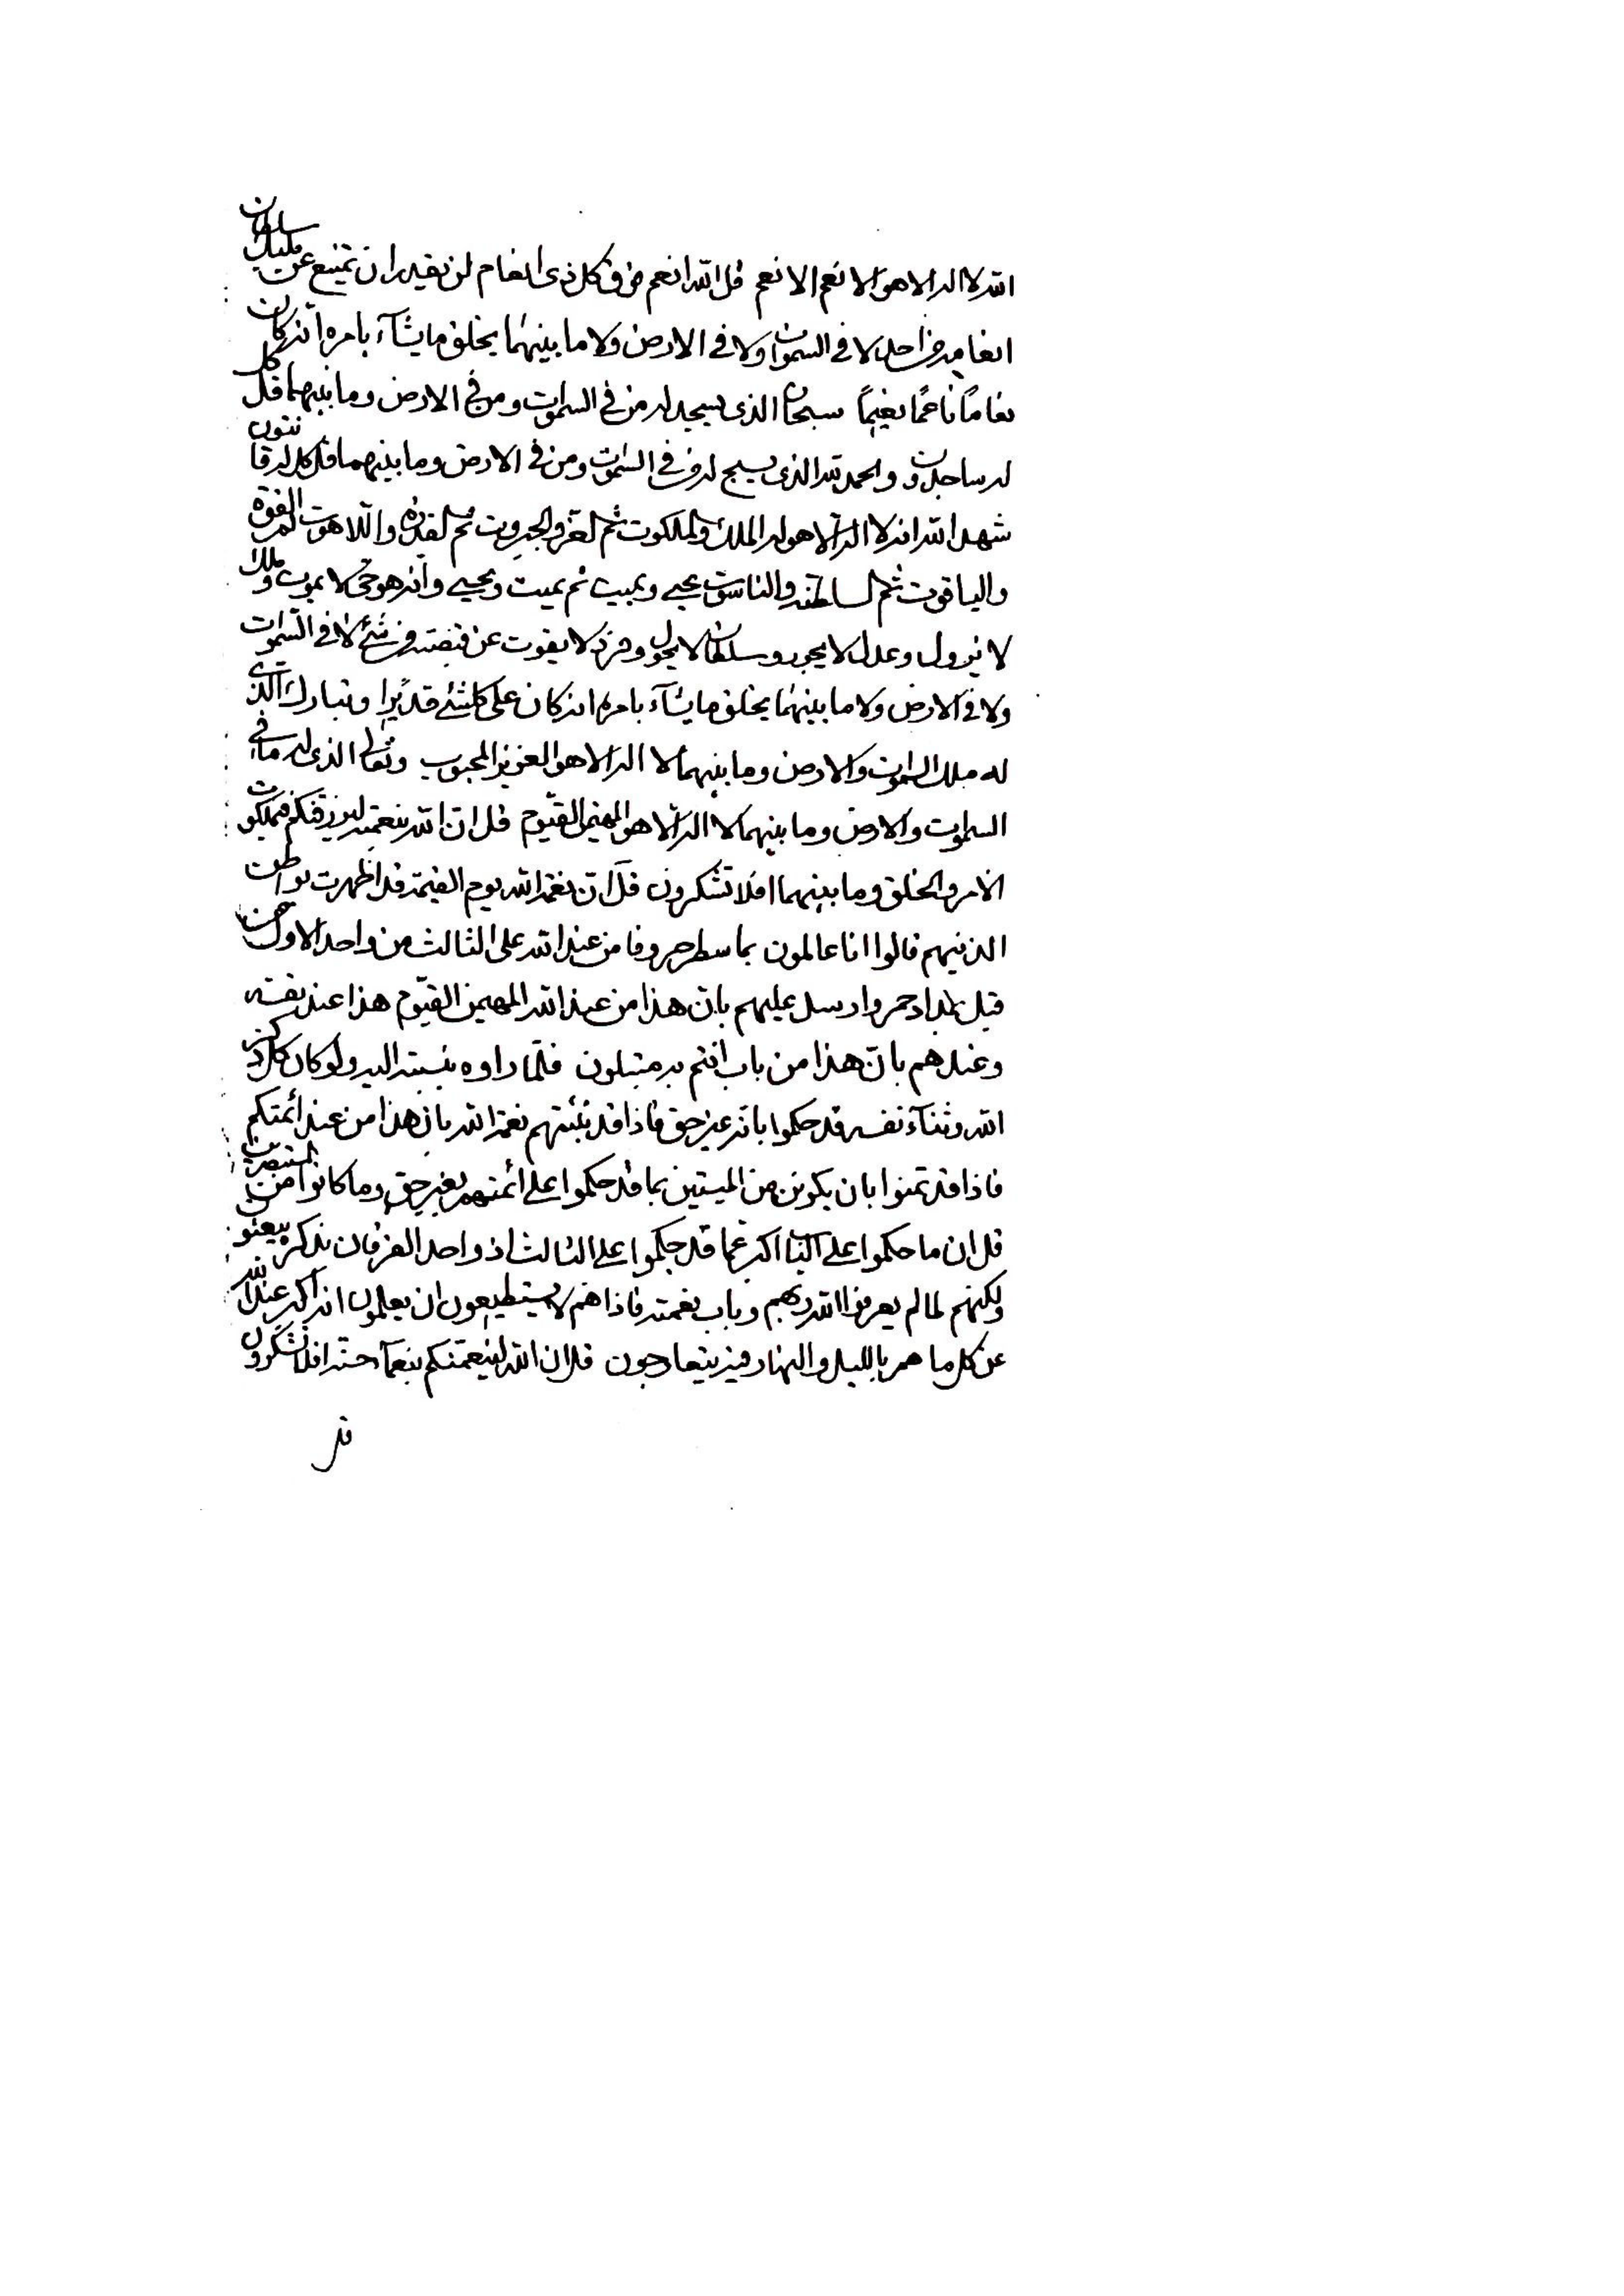 الله لا اله الا هو الانعم الانعم قل الله انعم فوق كل ذی انعام لن يقدر ان يمتنع عن مليك سلطان
انعامه من احد لا فی السموات ولا فی الارض ولا ما بينهما يخلق ما يشآء بامره انه كان
نعاما ناعمًا نعيمًا سبحان الذی يسجد له من فی السموات ومن فی الارض وما بينهما قل كل
له ساجدون والحمد لله الذی يسبح له من فی السموات ومن فی الارض وما بينهما قل كل له قانتون
شهد الله انه لا اله الا هو له الملك والملكوت ثم العز والجبروت ثم القدرة واللاهوت ثم القوة
والياقوت ثم السلطنة والناسوت يحيی ويميت ثم يميت ويحيی وانه هو حی لا يموت وملك
لا يزول وعدل لا يجور وسلطان لا يحول وفرد لا يفوت عن قبضته من شئ لا فی السموات
ولا فی الارض ولا ما بينهما يخلق ما يشآء بامره انه كان علی كلشئ قديرا وتبارك الذی
له ملك السموات والارض وما بينهما لا اله الا هو العزيز المحبوب وتعالی الذی له ما فی
السموات والارض وما بينهما لا اله الا هو المهيمن القيوم قل ان الله بنعمته ليرزقنكم ملكوت
الامر والخلق وما بينهما افلا تشكرون قل ان نعمة الله يوم القيمة قد اظهرت بواطن
الذينهم قالوا انا عالمون بما سطر حروفا من عند الله علی الثالث من واحد الاول من
قبل بمداد حمر وارسل عليهم بان هذا من عند الله المهيمن القيوم هذا عند نفسه
وعندهم بان هذا من باب انتم به متبلون فلما راوه بنسبته اليه ولو كان كل ذكر
الله وثنآء نفسه قد حكموا بانه غير حق فاذا قد نبئتهم نعمة الله بان هذا من عند ائمتكم
فاذا قد تمنوا بان يكونن من الميتين بما قد حكموا علی ائمتهم بغير حق وما كانوا من المستبصرين
قل ان ما حكموا علی الباب اكبر عما قد حكموا علی الثالث اذ واحد الفرقان بذكره يبعثون
ولكنهم لما لم يعرفوا الله ربهم وباب نعمته فاذا هم لا يستطيعون ان يعلمون انه اكبر عند الله
عن كل ما هم بالليل والنهار فيه يتعارجون قل ان الله لينعمنكم بنعمآء جنته افلا تشكرون